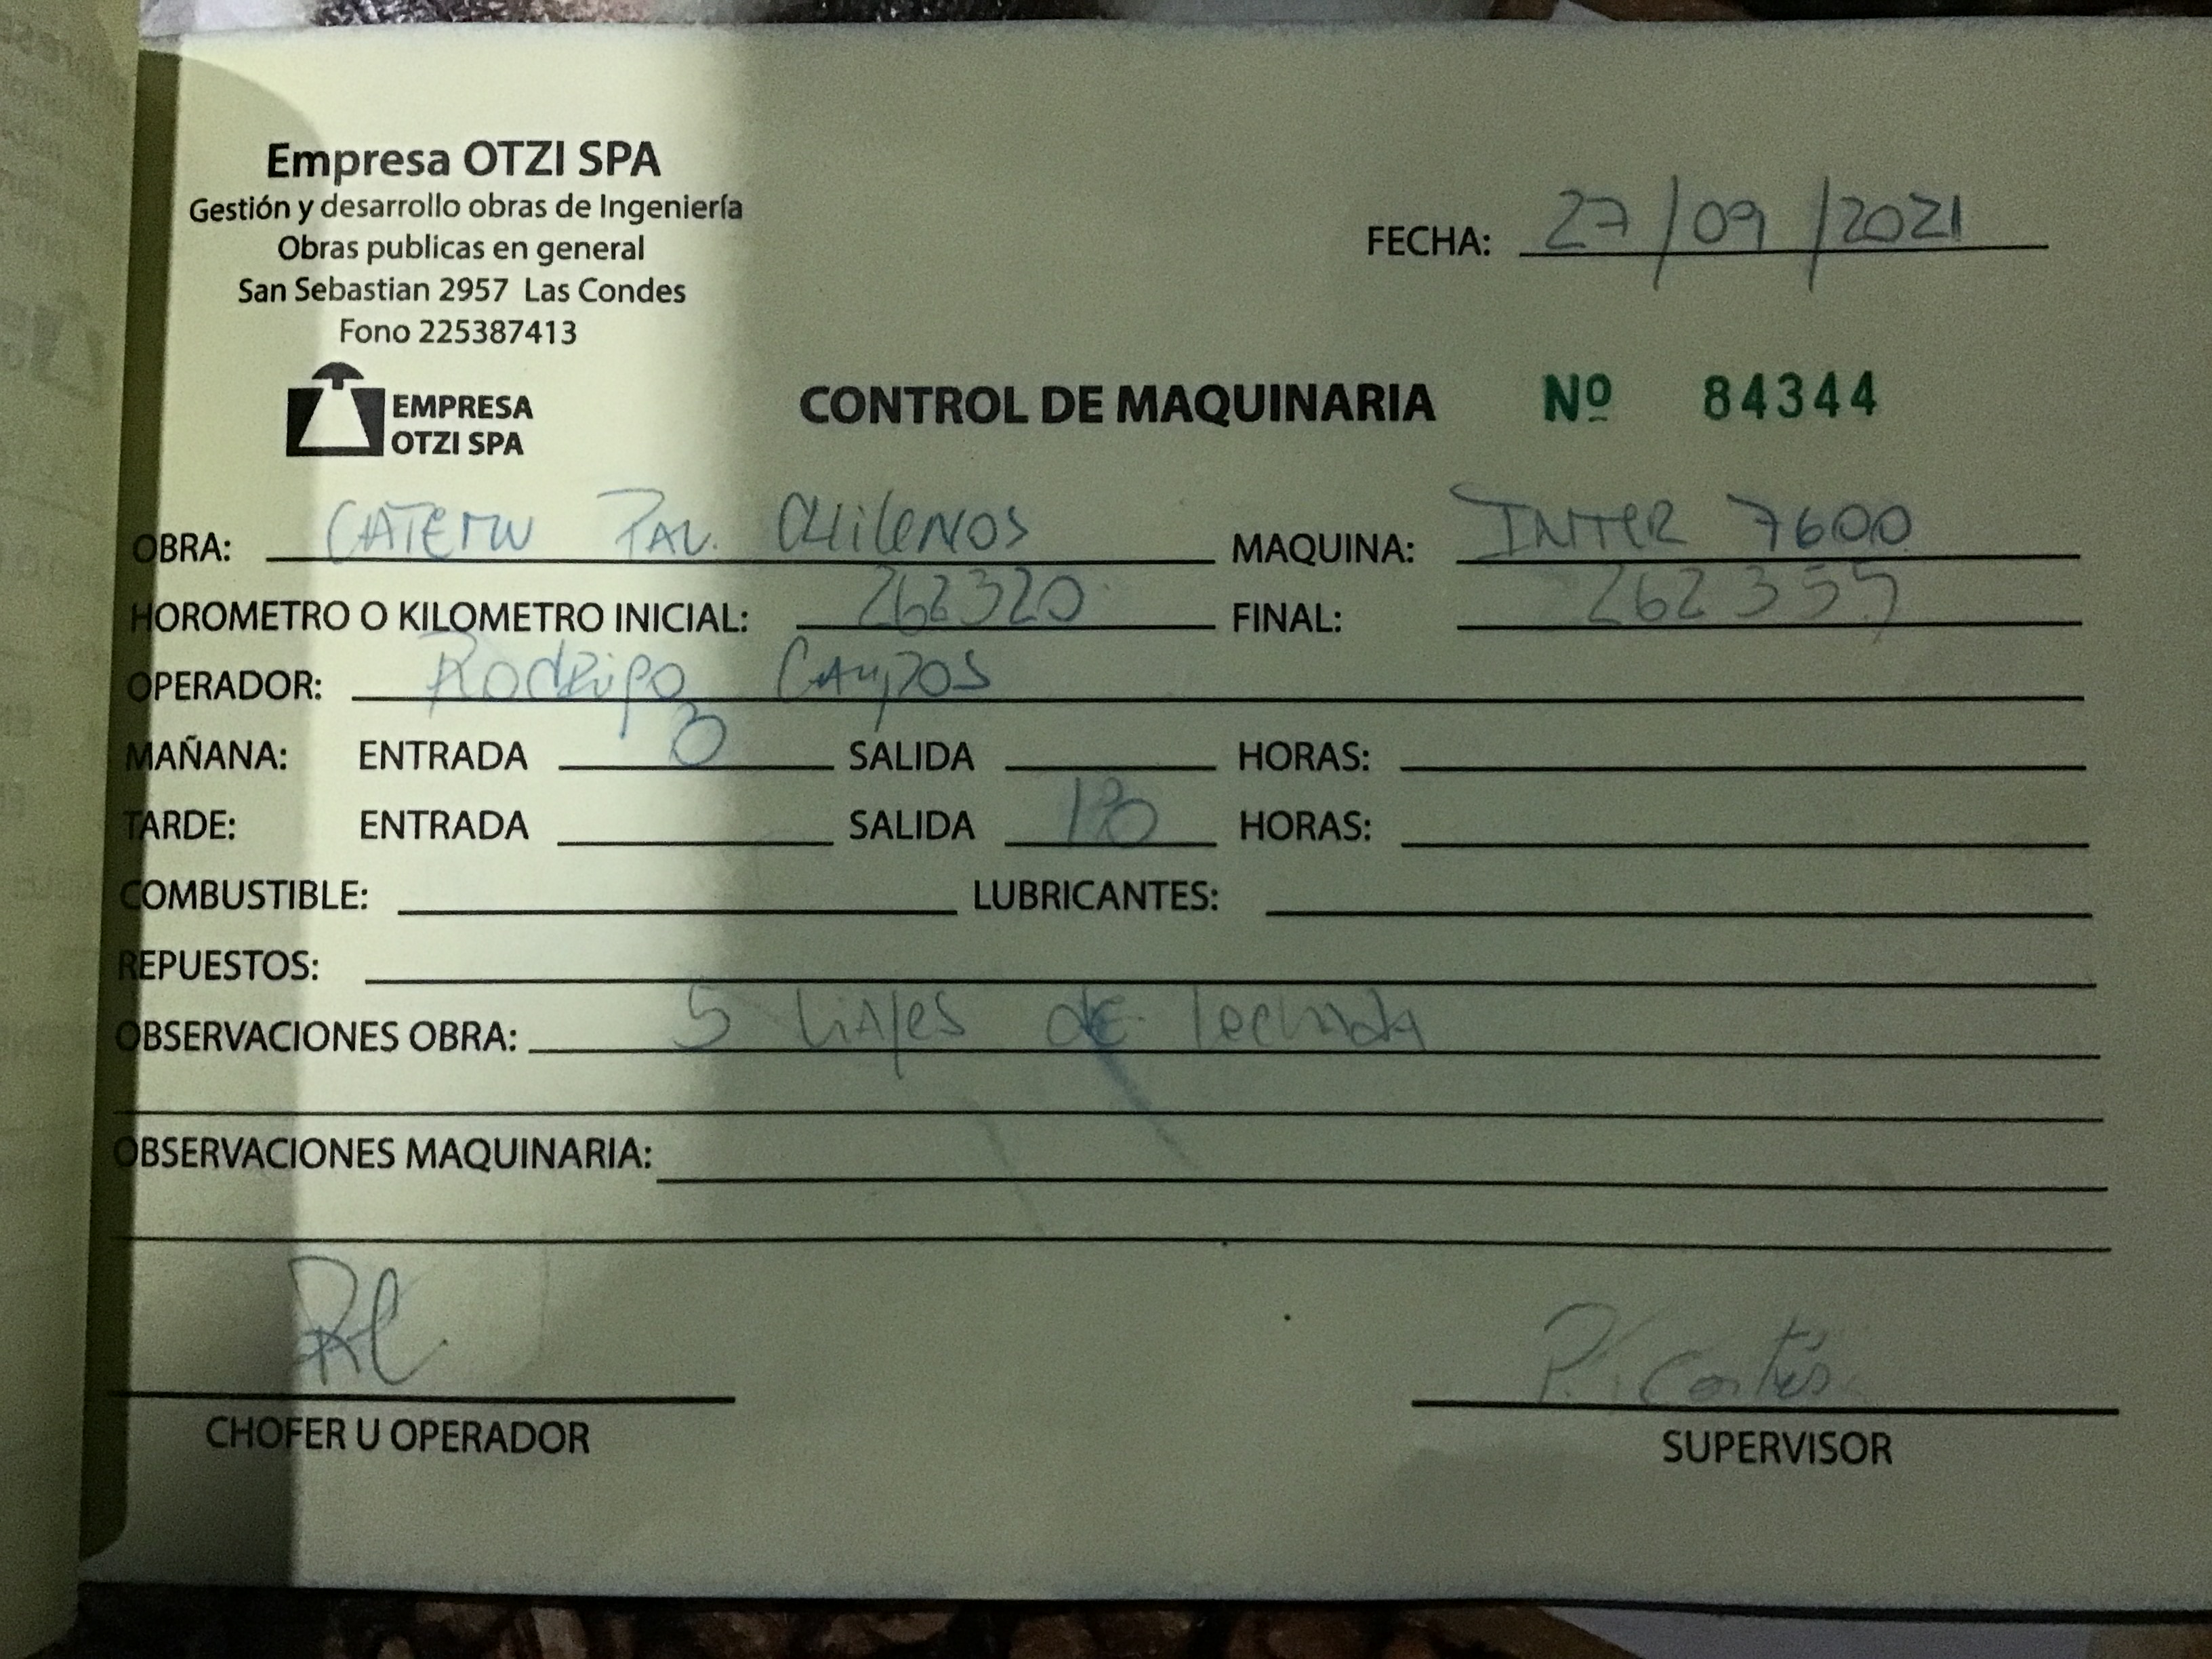 Empresa OTZI SPA
Gestión y desarrollo obras de Ingeniería
Obras publicas en general
San Sebastian 2957 Las Condes
Fono 225387413
EMPRESA
OTZI SPA
FECHA: 27/09/2021
CONTROL DE MAQUINARIA Nº 84344
OBRA: CATEMU PAV. CHILENOS MAQUINA: INTER 7600
HOROMETRO O KILOMETRO INICIAL: 262320 FINAL: 262355
OPERADOR: Rodrigo Campos
MAÑANA: ENTRADA 8 SALIDA HORAS:
TARDE: ENTRADA SALIDA 18 HORAS:
COMBUSTIBLE: LUBRICANTES:
REPUESTOS:
OBSERVACIONES OBRA: 5 Viajes de lechada
OBSERVACIONES MAQUINARIA:
RC
P. Cortés
CHOFER U OPERADOR
SUPERVISOR